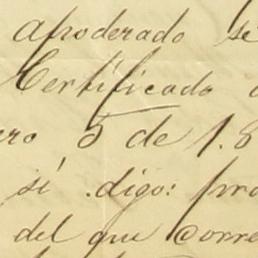 apoderado se
Certificado
ero 5 de 1.8
sí digo: pro
del que corre